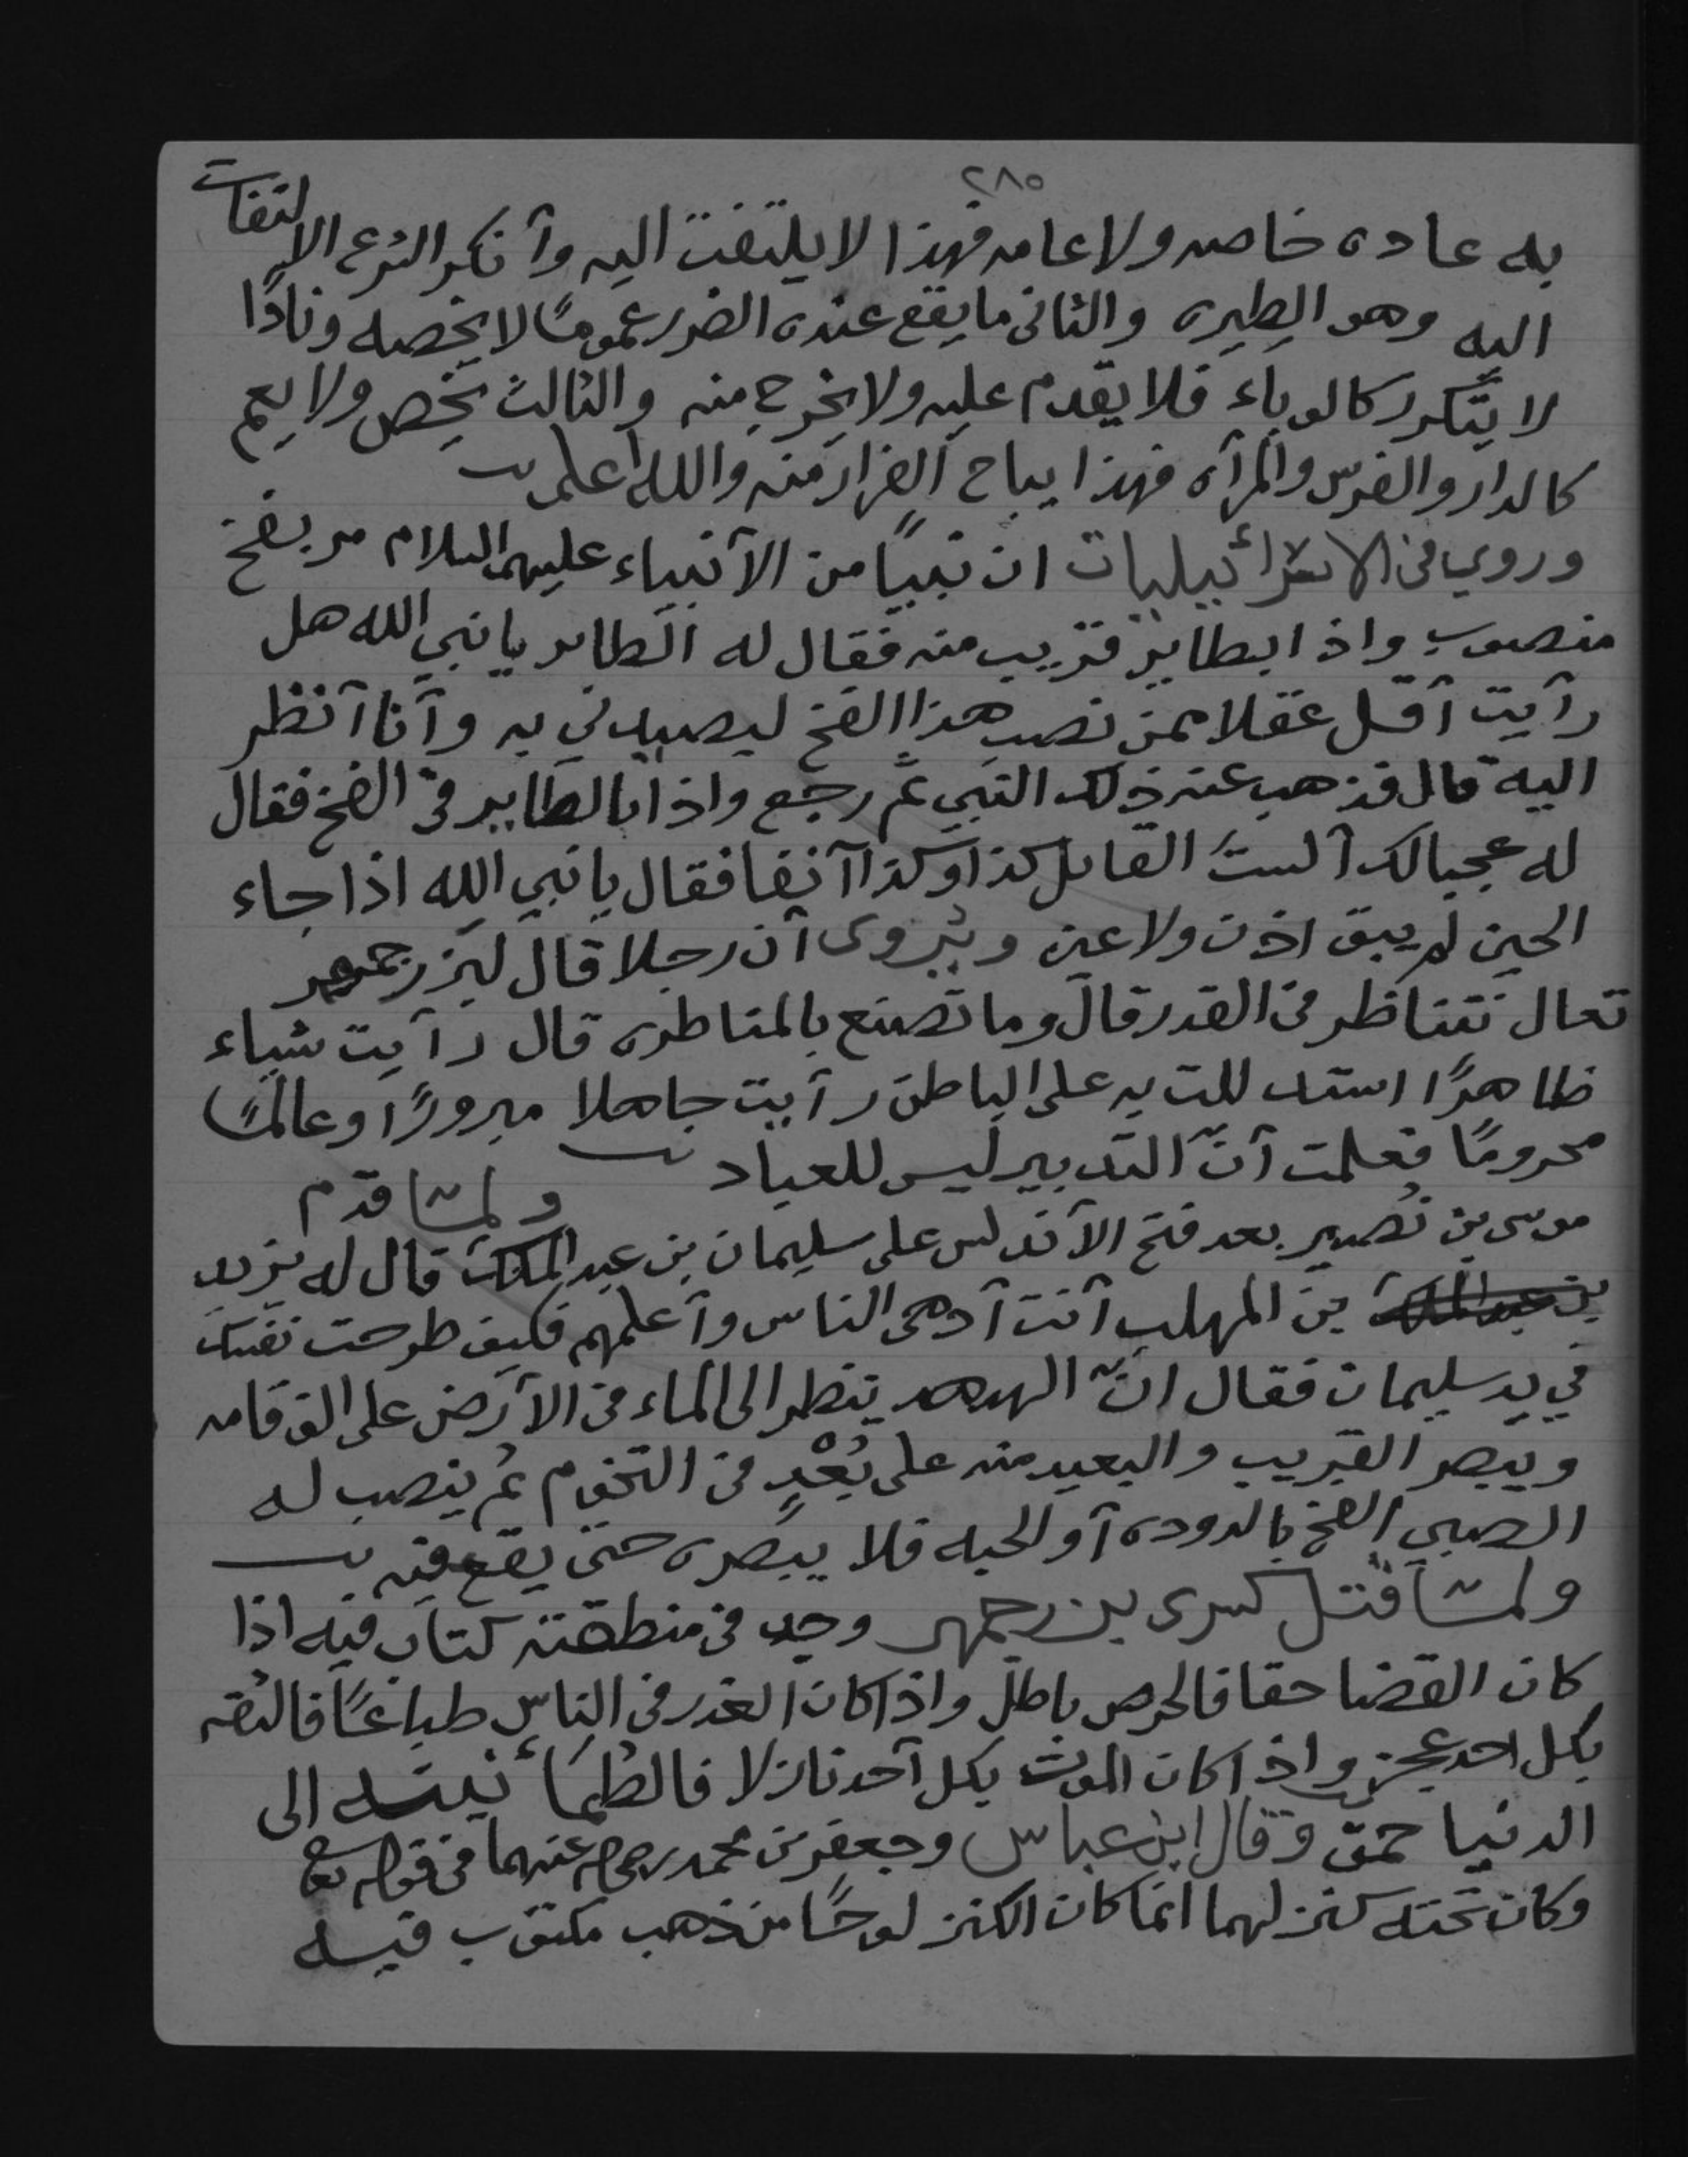 ٢٨٥
به عاده خاصه ولا عامه فهذا لا يلتفت اليه وآنكر الشرع الالتفات
اليه وهو الطيره والثانى ما يقع عنده الضرر عمومًا لا يخصه ونادًا
لا يتكرر كالوباء فلا يقدم عليه ولا يخرج منه والثالث يخص ولا يعم
كالدار والفرس والمرآه فهذا يباح الفرار منه والله اعلم
وروي فى الاسرائيليات ان نبيًا من الآنبياء عليهم السلام مر بفخ
منصوب واذا بطاير قريب منه فقال له الطاير يا نبي الله هل
رآيت آقل عقلا ممن نصب هذا الفخ ليصيدني به وآنا آنظر
اليه قال فذهب عنه ذلك النبي ثم رجع واذا بالطاير في الفخ فقال
له عجبا لك آلست القايل كذا وكذا آنفا فقال يا نبي الله اذا جاء
الحين لم يبق اذن ولا عين ويروى آن رجلا قال لبزرجمهر
تعال نتناظر فى القدر قال وما تصنع بالمناظره قال رآيت شياء
ظاهرًا استدللت به على الباطن رآيت جاهلا مبرورًا وعالمًا
محرومًا فعلمت آنّ التدبير ليس للعباد ولما قدم
موسى بن نُصير بعد فتح الآندلس على سليمان بن عبد الملك قال له يزيد
بن عبد الملك بن المهلب آنت آدهى الناس وآعلمهم فكيف طرحت نفسك
في يد سليمان فقال انّ الهدهد ينظر الى الماء فى الآرض على الف قامه
ويبصر القريب والبعيد منه على بُعْدٍ فى التخوم ثم ينصب له
الصبي الفخ بالدوده آو الحبه فلا يبصره حتى يقع فيه
ولما قتل كسرى بزرجمهر وجد فى منطقته كتاب فيه اذا
كان القضا حقا فالحرص باطل واذا كان الغدر فى الناس طباعًا فالثقه
بكل احد عجز واذا كان الموت بكل آحد نازلا فالطمأنينه الى
الدنيا حمق وقال ابن عباس وجعفر بن محمد رضى الله عنهما فى قوله تعا
وكان تحته كنز لهما انما كان الكنز لوحًا من ذهب مكتوب فيه